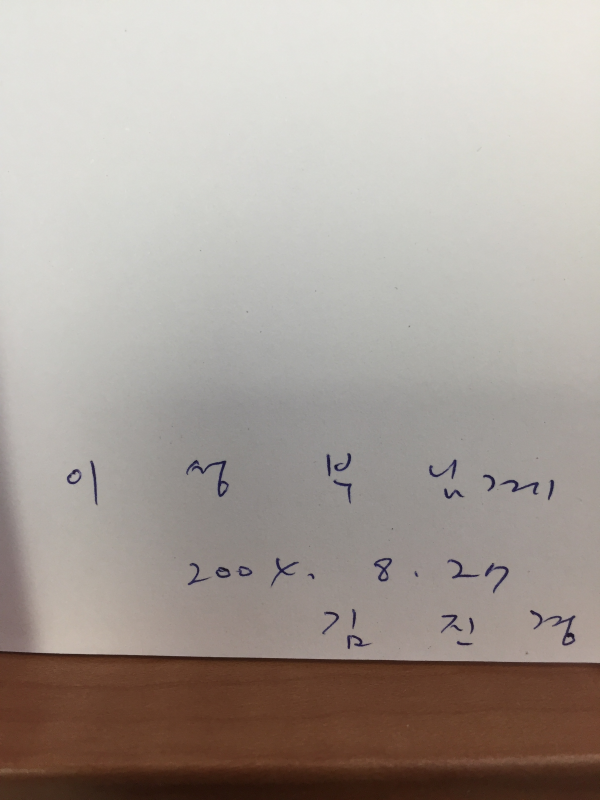 이 정 부 님께
2004. 8. 27
김 진 경